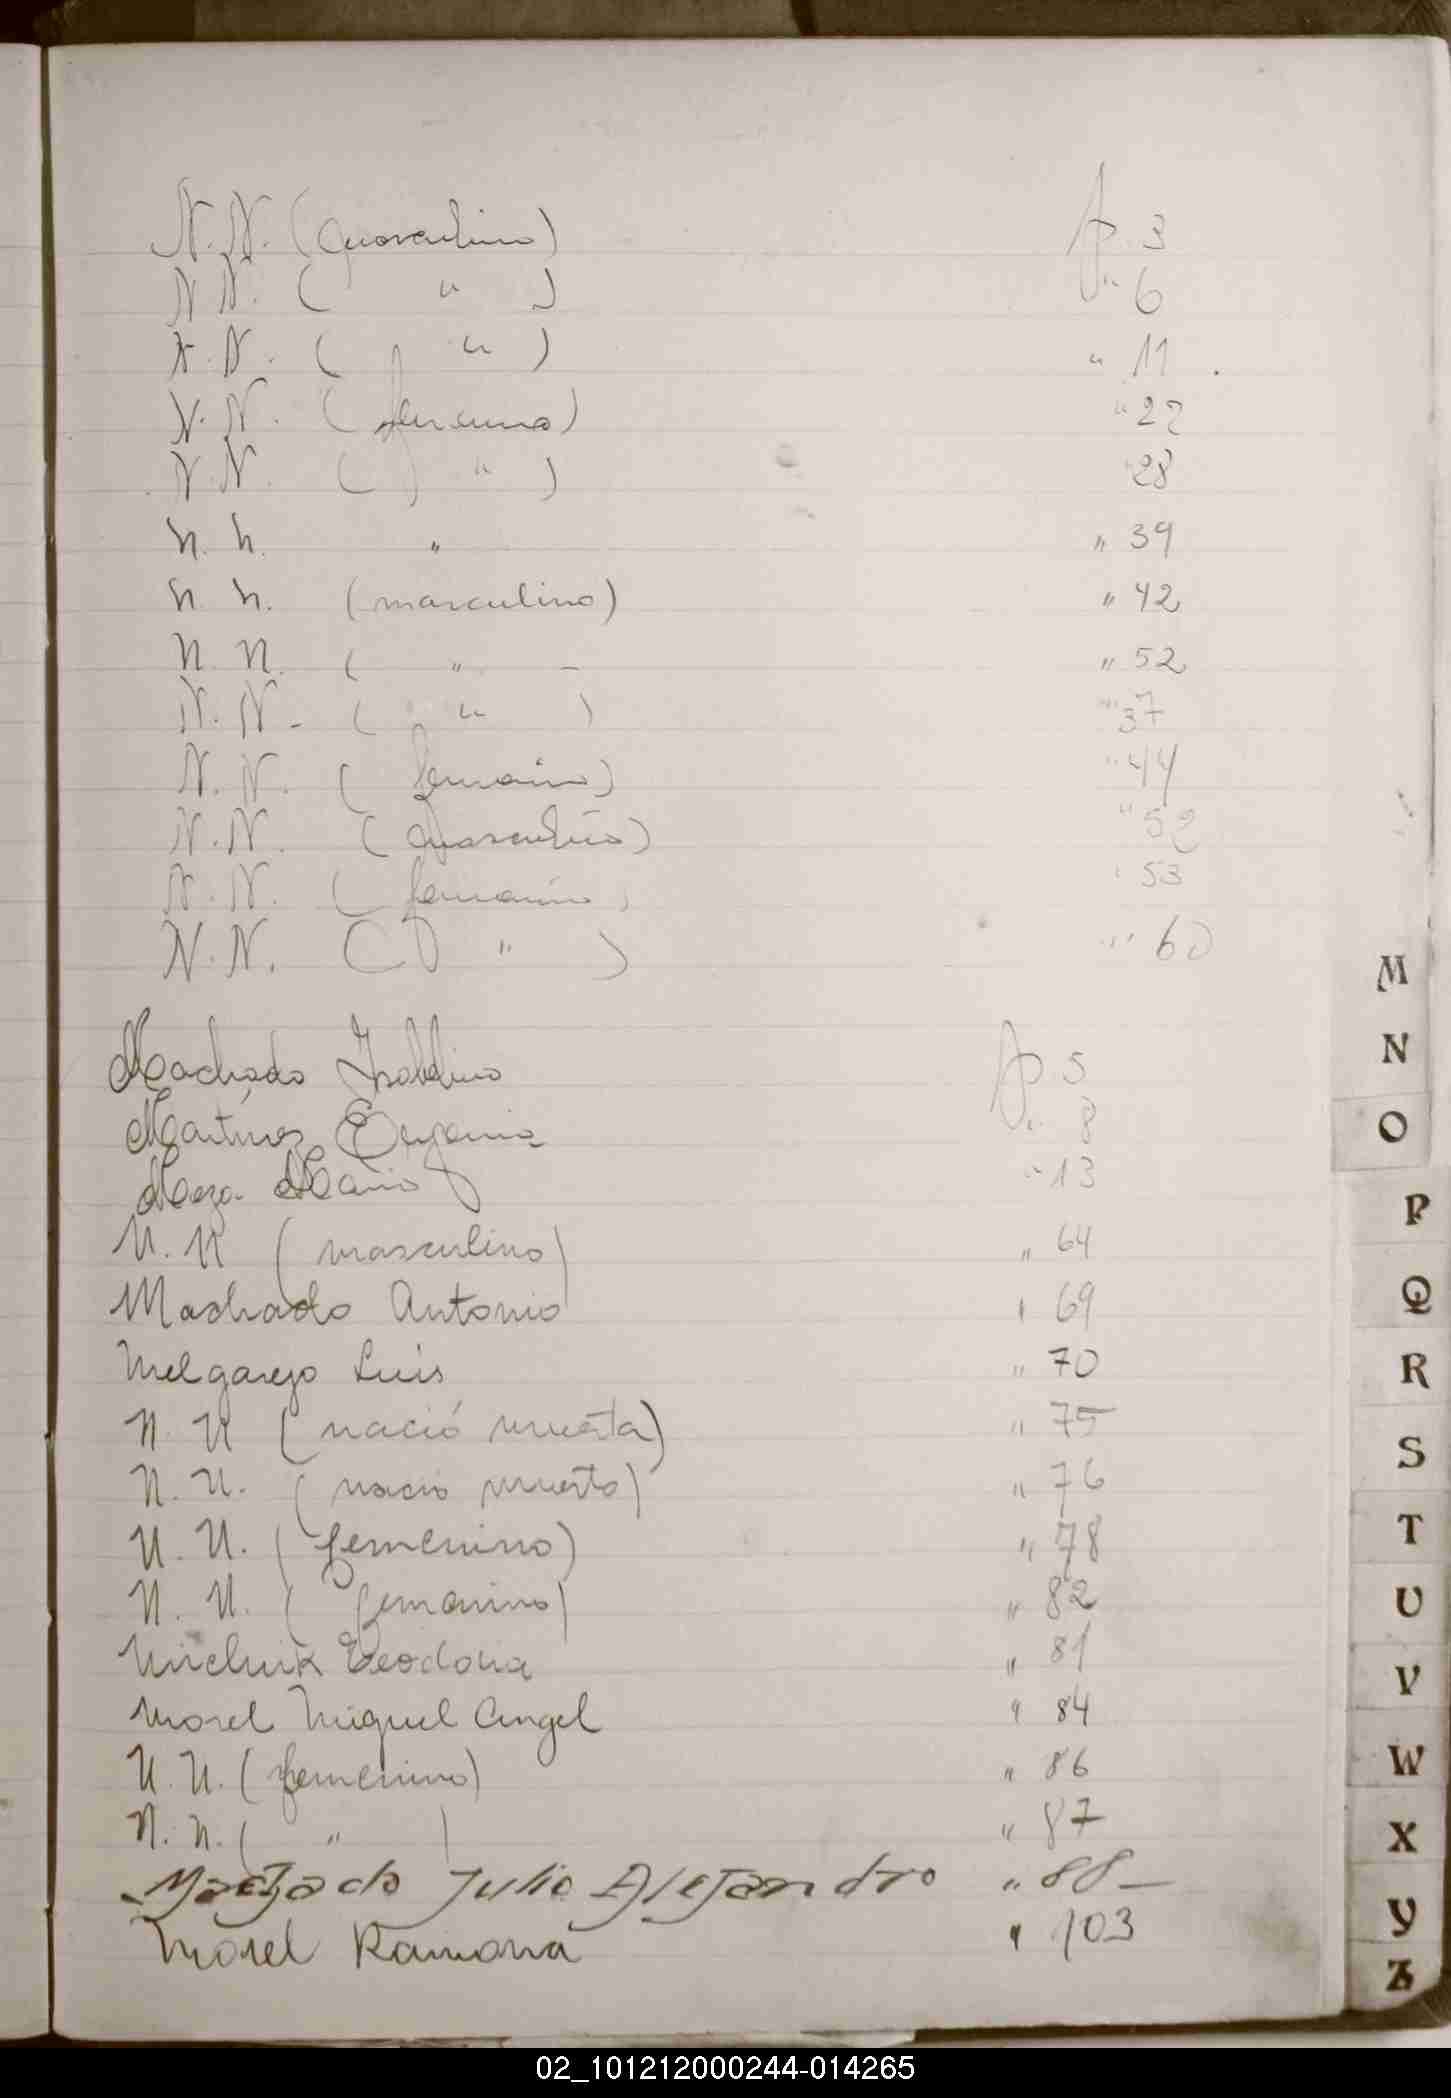 N. N. (masculino) Fº 3
N N. ( " ) " 6
N. N. ( " ) " 11
N. N. ( femenino) " 22
N N. ( " ) " 28
N. N. " " 39
N. N. (masculino) " 42
N. N. ( " - " 52
N. N. - ( " ) " 37
N. N. ( femenino) " 44
N. N. ( masculino) " 52
N. N. ( femenino) " 53
N. N. ( " ) " 60
Machado Isabelino Fº 5
Martínez Eugenia " 8
Meza Mario " 13
N. N ( masculino) " 64
Machado Antonio " 69
Melgarejo Luis " 70
N. N ( nació muerta) " 75
N. N. ( nació muerto) " 76
N. N. ( femenino) " 78
N. N. ( femenino) " 82
Teodoria " 81
Morel Miguel Angel " 84
N. N. ( femenino) " 86
N. N. ( " ) " 87
Machado Julio Alejandro " 88 -
Morel Ramona " 103
M
N
O
P
Q
R
S
T
U
V
W
X
Y
Z
02_101212000244-014265